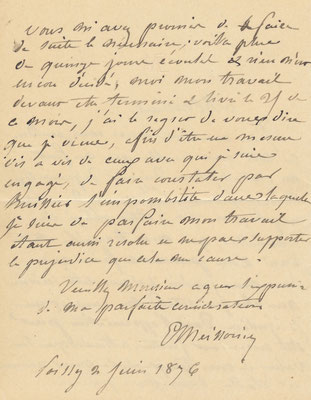 Vous m'avez promis de faire
de suite le nécessaire, voilà plus
de quinze jours écoulé & rien n'est
encore décidé, moi mon travail
devant être terminé & livré le 25 de
ce mois, j'ai le regret de vous dire
que je viens, afin d'être en mesure
vis a vis de ceux avec qui je suis
engagé, de faire constater par
huissier l'impossibilité dans laquelle
je suis de parfaire mon travail
étant aussi résolu a ne pas supporter
le préjudice que cela me cause.
Veuillez Monsieur agréer l'expression
de ma parfaite considération
EMeissonier
Poissy 2 Juin 1876